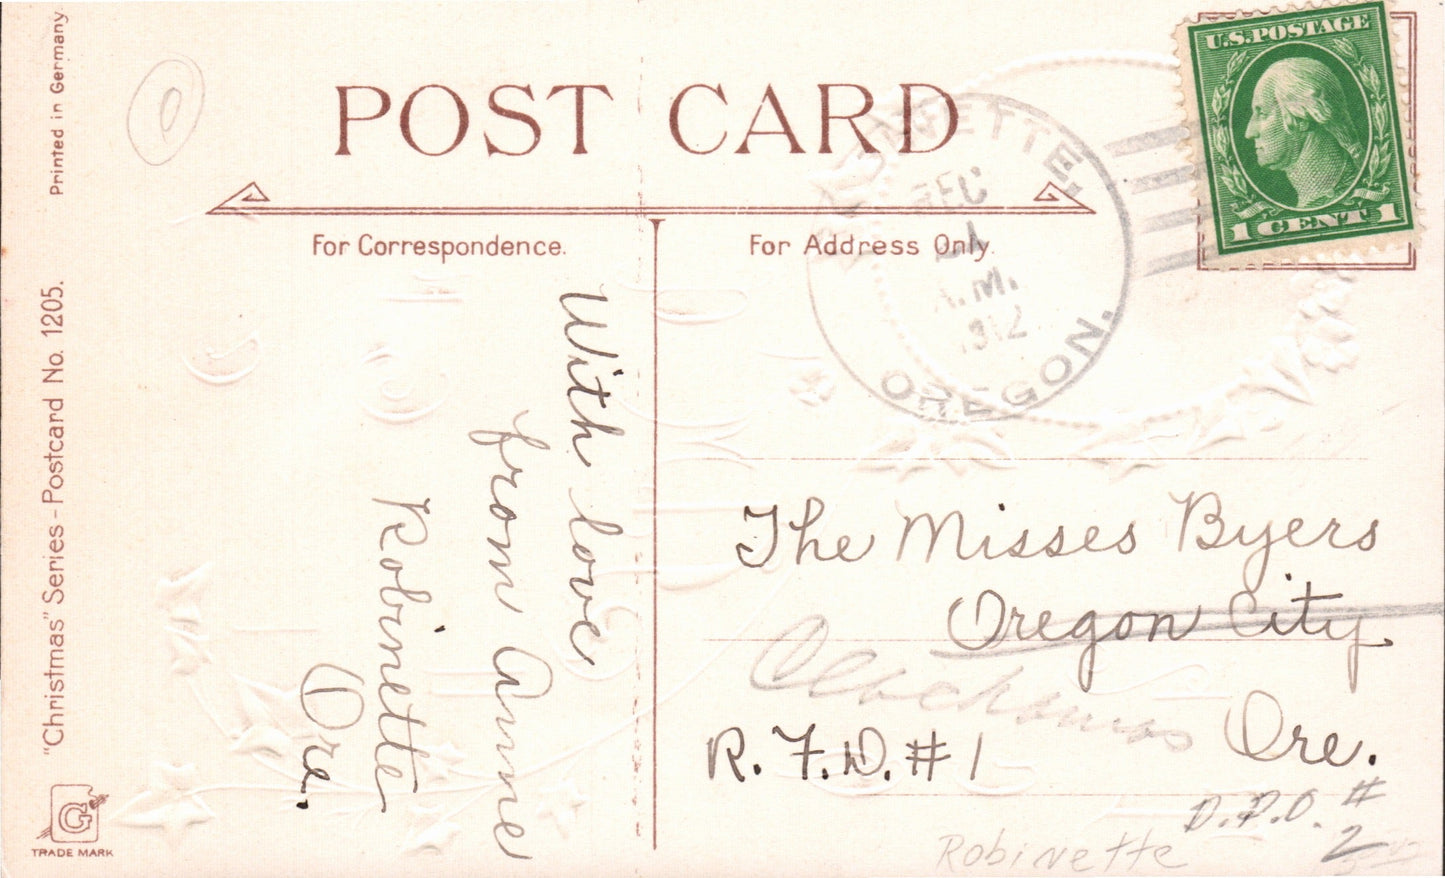 Printed in Germany
"Christmas" Series - Postcard No. 1205.
G
TRADE MARK
POST CARD
For Correspondence.
For Address Only.
U.S. POSTAGE
1 CENT 1
DEC
A.M.
1912
OREGON.
With love
from Anne
Robinette
Ore.
The Misses Byers
Oregon City
Clackamas
Ore.
R. F. D. # 1
#
2
Robinette